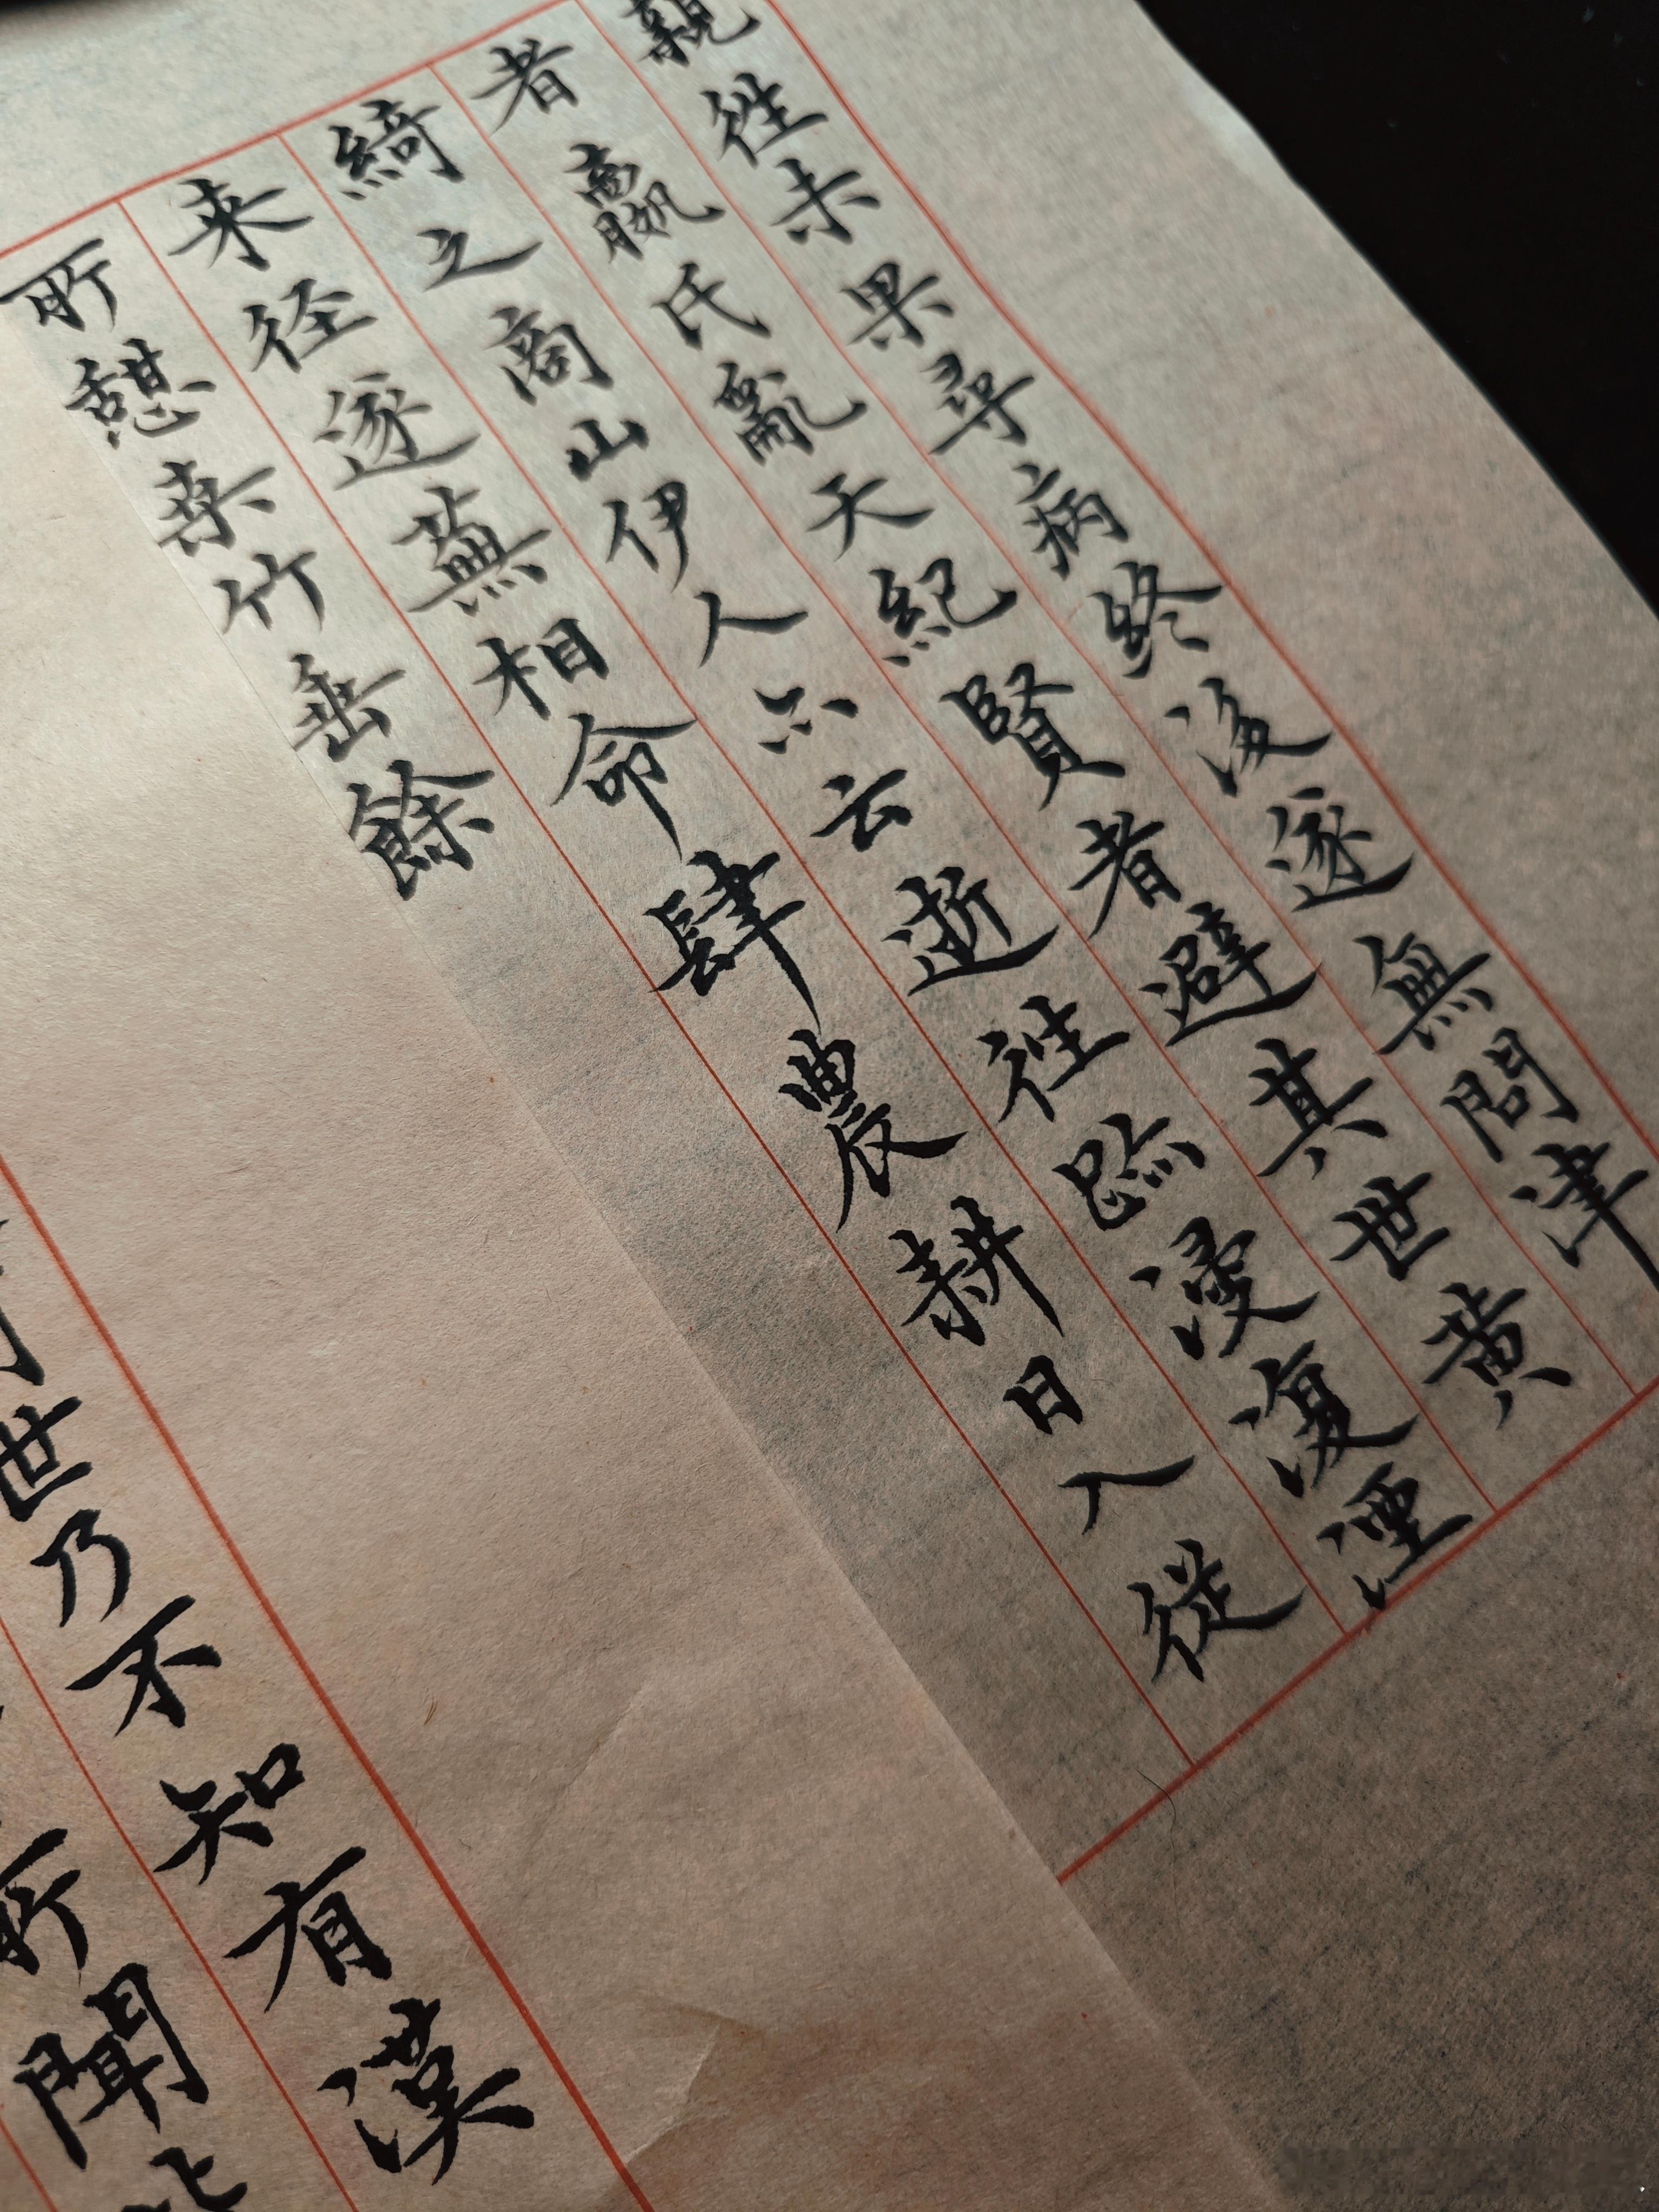 親往未果尋病終後遂無問津
者嬴氏亂天紀賢者避其世黃
綺之商山伊人亦云逝往跡浸復湮
来径遂蕪相命肆農耕日入從
所憩桑竹垂餘
世乃不知有漢
所聞